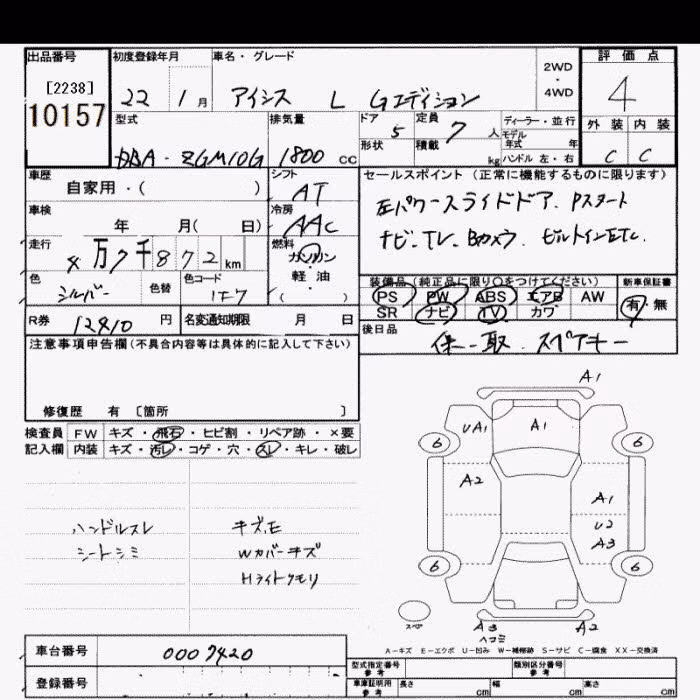 出品番号 初度登録年月 車名・グレード 評価点
[2238] 2WD・4WD 4
10157 22 1月 アイシス L Gエディション
型式 排気量 ドア 5 定員 7人 ディーラー・並行 外装 内装
形状 積載 kg モデル年式 年
DBA-ZGM10G 1800cc ハンドル左・右 C C
車歴 シフト セールスポイント(正常に機能するものに限ります)
自家用・( ) AT
左パワースライドドア. Pスタート
車検 冷房
年 月( 日) AAC
ナビ-TV. Bカメラ. ビルトインETC.
走行 燃料
4万7千872km ガソリン
軽・油
( )
装備品(純正品に限り○をつけてください) 新車保証書
色 シルバー 色替 色コード 1F7
PS PW ABS エアB AW 有・無
SR ナビ TV カワ
R券 12410円 名変通知期限 月 日
後日品 保-取. スペアキー
注意事項申告欄(不具合内容等は具体的に記入して下さい)
修復歴 有 〔箇所 〕
検査員 FW キズ・飛石・ヒビ割・リペア跡・×要
記入欄 内装 キズ・汚レ・コゲ・穴・スレ・キレ・破レ
A1
6 UA1 A1 6
A2 A1
U2
A3
ハンドルスレ キズ,E
シートシミ Wカバーキズ
Hライトクモリ
6 6
スペア A3 A2
ヘコミ
A-キズ E-エクボ U-凹み W-補修跡 S-サビ C-腐食 XX-交換済
車台番号 0007420
型式指定番号 参考 類別区分番号 参考
登録番号
車庫証明用 参考 長さ cm 幅 cm 高さ cm